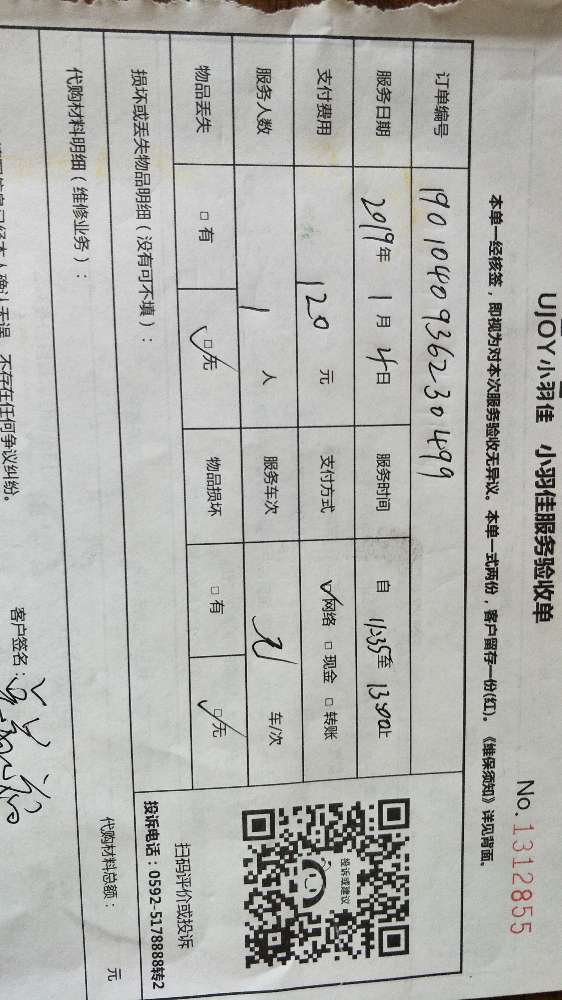 UJOY小羽佳 小羽佳服务验收单
No.1312855
本单一经核签，即视为对本次服务验收无异议。本单一式两份，客户留存一份(红)。《维保须知》详见背面。
订单编号 19010409362301499
服务日期 2019年 1月 4日 服务时间 自 11:35至 13:00止
支付费用 120 元 支付方式 ☑网络 □现金 □转账
服务人数 1 人 服务车次 车/次
物品丢失 □有 ☑无 物品损坏 □有 ☑无
投诉或建议
扫码评价或投诉
投诉电话：0592-5178888转2
损坏或丢失物品明细（没有可不填）：
代购材料明细（维修业务）：
代购材料总额： 元
不存在任何争议纠纷。
客户签名：